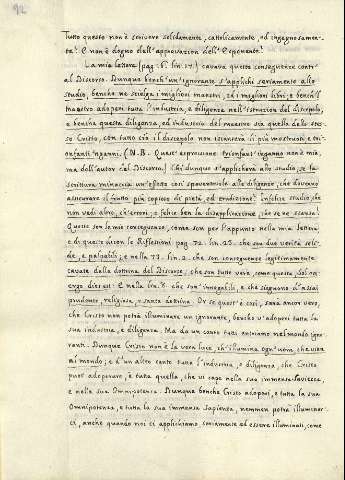 92
Tutto questo non è scrivere solidamente, cattolicamente, ed ingegnosamen-
te? E non è degno dell'approvazion dell'Esponente?
La mia lettera (pag. 6. lin. 17.) cavava queste conseguenze contr'
al Discorso. Dunque bench'un'ignorante s'applichi seriamente allo
studio, benche ne scielga i migliori maestri, ed i migliori libri: e benche'l
maestro adoperi tutta l'industria, e diligenza nell'istruzion del discepolo,
e benche questa diligenza, ed industria del maestro sia quella dello stes-
so Cristo, con tutto ciò il discepolo non iscanserà li più mostruosi e tri-
onfanti'nganni. (N.B. Quest'espressione trionfant'inganno non è mia,
ma dell'autor del Discorso.) Chi dunque s'applicherà allo studio, se la
scrittura minaccia un'effetto così spaventevole alla diligenza, che doveva
assicurare il frutto più copioso di pietà, ed erudizione? Infelice studio, che
non vedi altro, ch'errori; e felice ben la disapplicazione, che se ne scansa!
Queste son le mie conseguenze, come son per l'appunto nella mia lettera:
e di queste dicon le Riflessioni pag. 72. lin. 23. che son due verità soli-
de, e palpabili; e nella 73. lin. 2. che son conseguenze legitimamente
cavate dalla dottrina del Discorso, che son tutte vere, come questa: dal mez-
zogiorno è dì: E nella lin. 8. che son innegabili, e che sieguono d'assai
prudente, religiosa, e santa dottrina. Or se quest'è così, sarà ancor vero,
che Cristo non potrà illuminare un'ignorante, benche v'adoperi tutta la
sua industria, e diligenza. Ma da un canto tutti entriamo nel mondo igno-
ranti. Dunque Cristo non è la vera luce, ch'illumina ogn'uom, che vien
al mondo; e d'un altro canto tutta l'industria, e diligenza, che Cristo
puot'adoperare, è tutta quella, che vi cape nella sua immensa Saviezza,
e nella sua Omnipotenza. Dunque benche Cristo adoperi, e tutta la sua
Omnipotenza, e tutta la sua immensa Sapienza, nemmen potrà illuminar-
ci, anche quando noi ci applichiamo seriamente ad essere illuminati, come